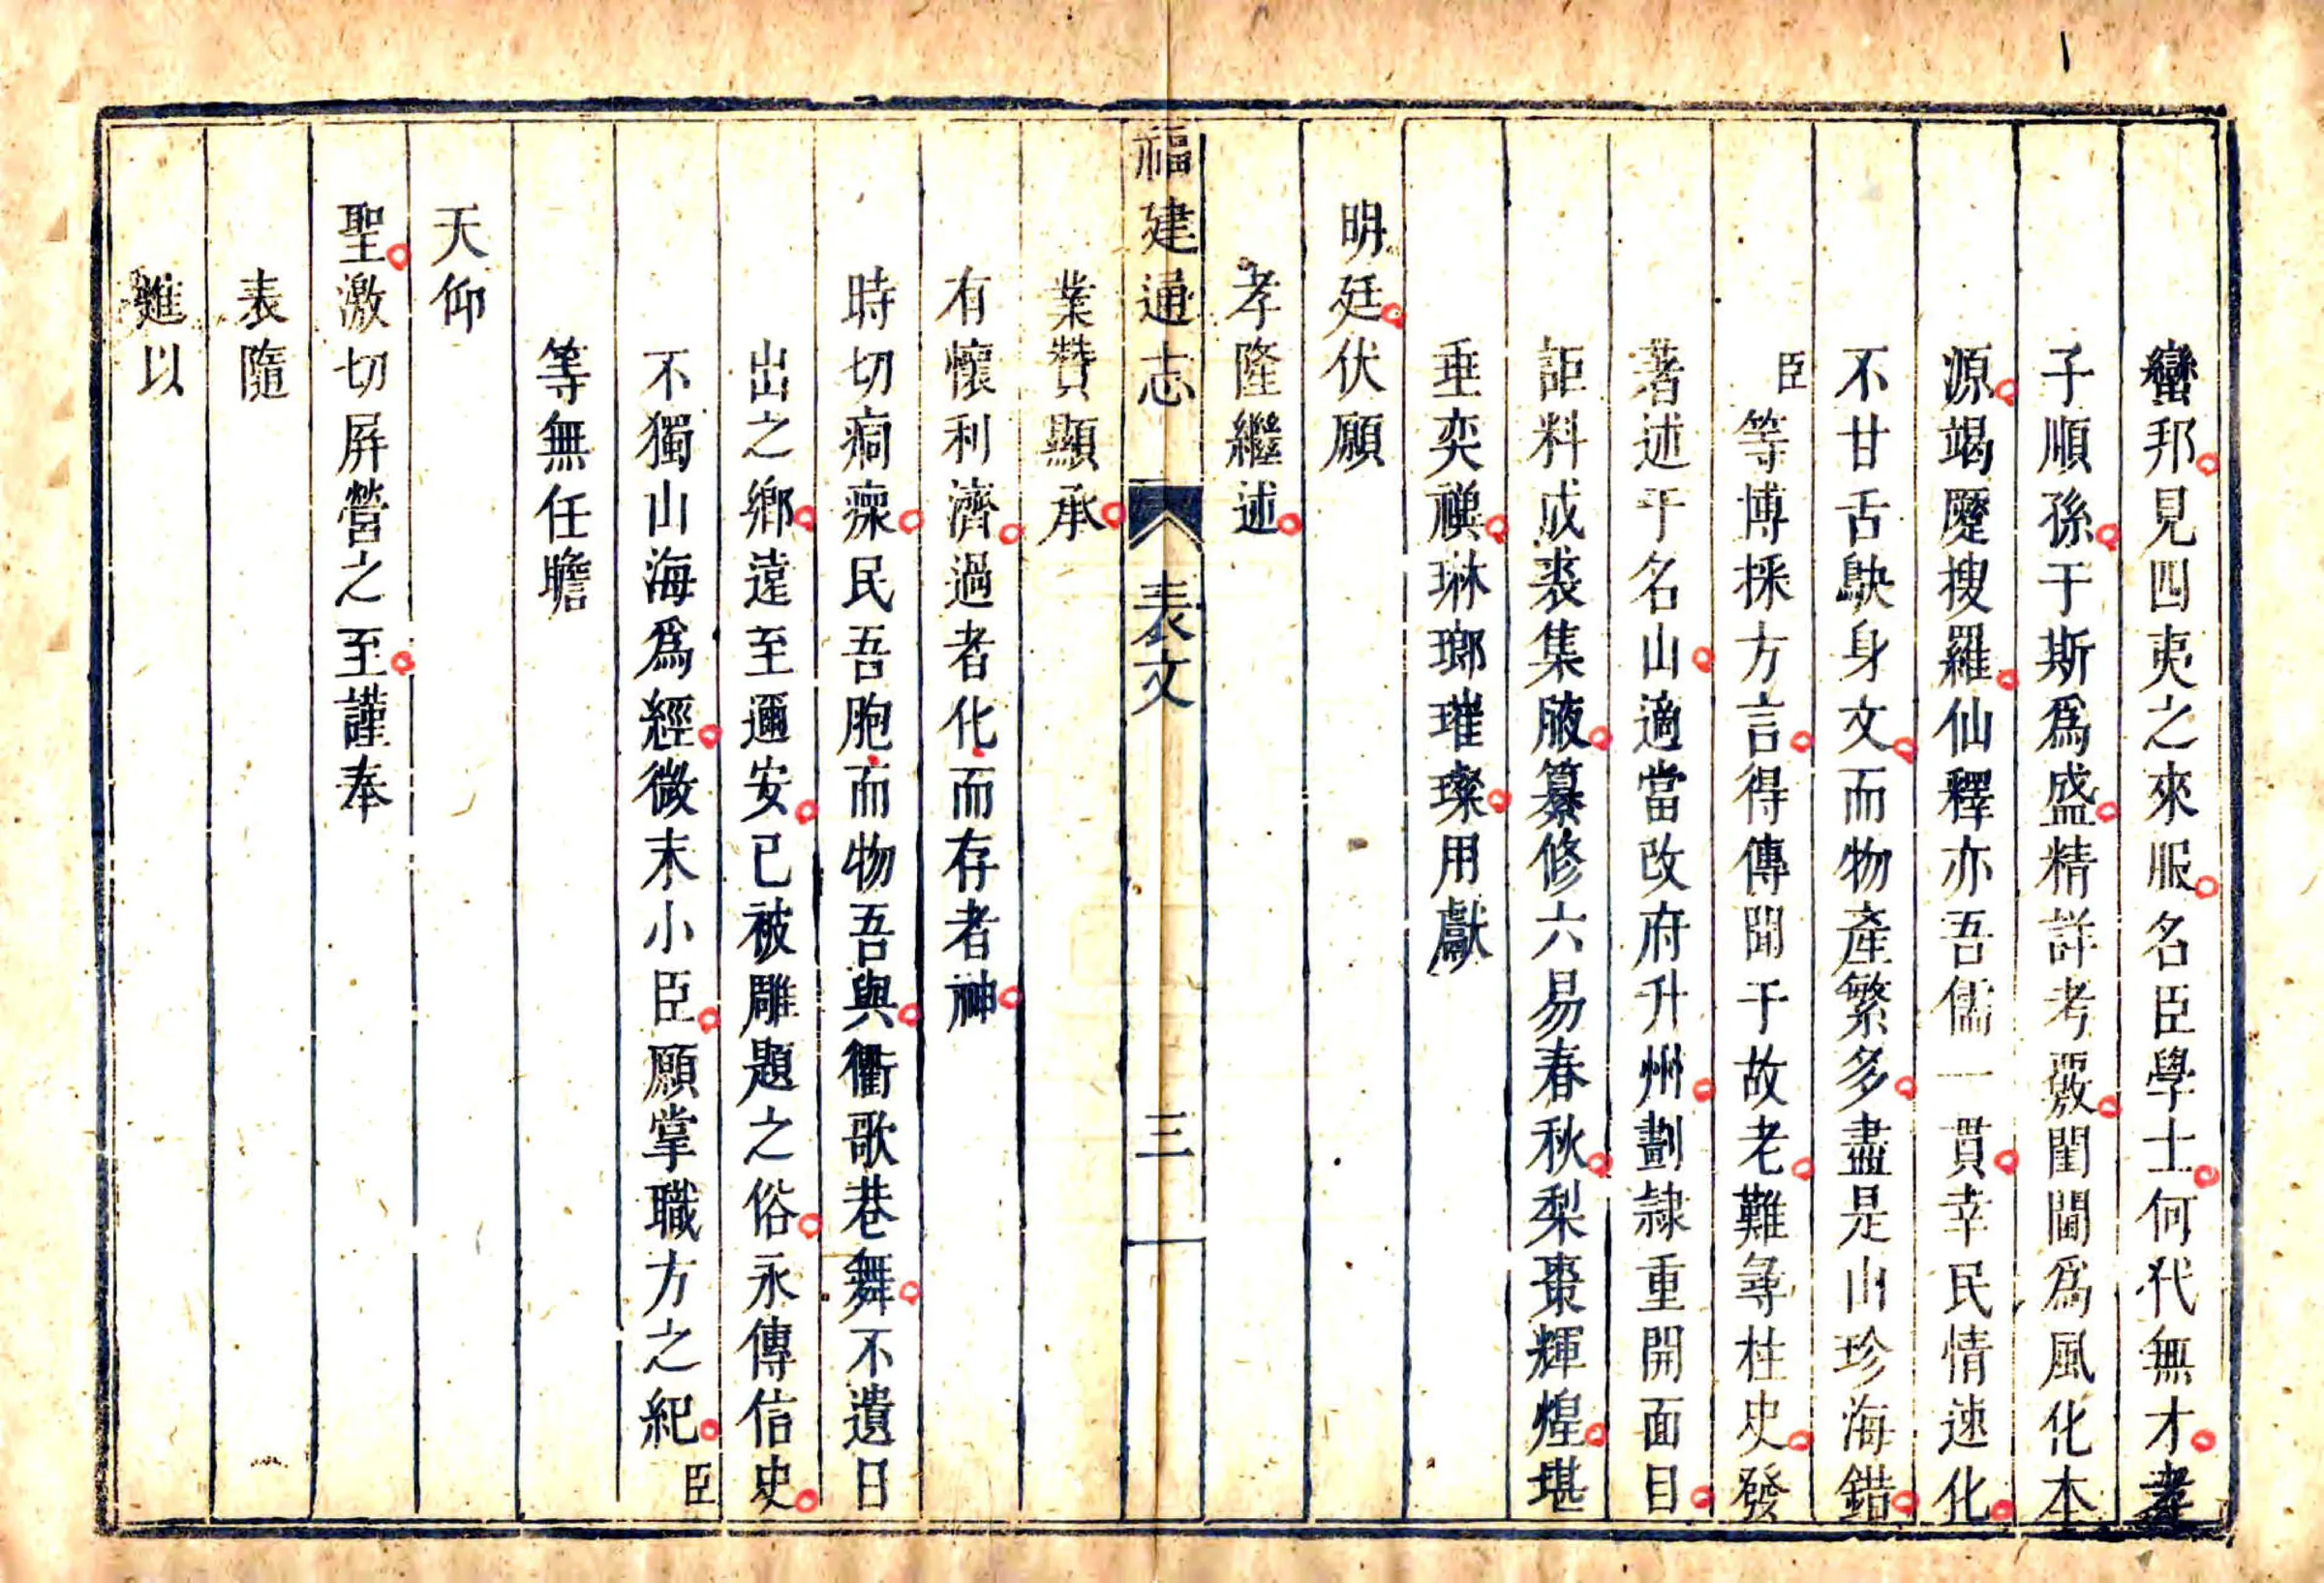 蠻邦見四夷之來服名臣學士何代無才孝
子順孫于斯爲盛精詳考覈閨閫爲風化本
源竭蹷搜羅仙釋亦吾儒一貫幸民情速化
不甘舌鴃身文而物產繁多盡是山珍海錯
臣等博採方言得傳聞于故老難尋柱史發
著述于名山適當改府升州劃隸重開面目
詎料成裘集腋纂修六易春秋梨棗輝煌堪
垂奕禩琳瑯璀璨用獻
明廷伏願
孝隆繼述
福建通志 表文 三
業贊顯承
有懷利濟過者化而存者神
時切痌瘝民吾胞而物吾與衢歌巷舞不遺日
出之鄉遠至邇安已被雕題之俗永傳信史
不獨山海爲經微末小臣願掌職方之紀臣
等無任瞻
天仰
聖激切屏營之至謹奉
表隨
進以